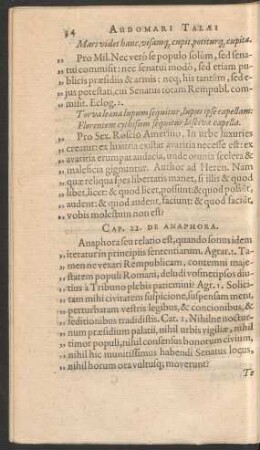 34 AUDOMARI TALÆI
Mars videt hanc, visamq; cupit, potiturq; cupita.
„ Pro Mil. Nec verò se populo solùm, sed sena-
„ tui commisit: nec senatui modò, sed etiam pu-
„ blicis præsidiis & armis: neq; his tantùm, sed e-
„ jus potestati, cui Senatus totam Rempubl. com-
„ misit. Eclog. 2.
Torva leæna lupum sequitur, lupus ipse capellam:
Florentem cythisum sequitur lasciva capella.
„ Pro Sex. Roscio Amerino. In urbe luxuries
„ creatur: ex luxuria existat avaritia necesse est: ex
„ avaritia erumpat audacia, unde omnia scelera &
„ maleficia gignuntur. Author ad Heren. Nam
„ quæ reliqua spes libertatis manet, si illis & quod
„ libet, licet: & quod licet, possunt: & quod possũt,
„ audent: & quod audent, faciunt: & quod faciũt,
„ vobis molestum non est?
CAP. 22. DE ANAPHORA.
Anaphora seu relatio est, quando sonus idem
„ iteratur in principiis sententiarum. Agrar. 2. Ta-
„ men ne vexari Rempublicam, contemni maje-
„ statem populi Romani, deludi vosmetipsos diu-
„ tiùs à Tribuno plebis patiemini? Agr. 1. Solici-
„ tam mihi civitatem suspicione, suspensam metu,
„ perturbatam vestris legibus, & concionibus, &
„ seditionibus tradidistis. Cat. 1. Nihilne noctur-
„ num præsidium palatii, nihil urbis vigiliæ, nihil
„ timor populi, nihil consensus bonorum civium,
„ nihil hic munitissimus habendi Senatus locus,
„ nihil horum ora vultusq; moverunt?
Te